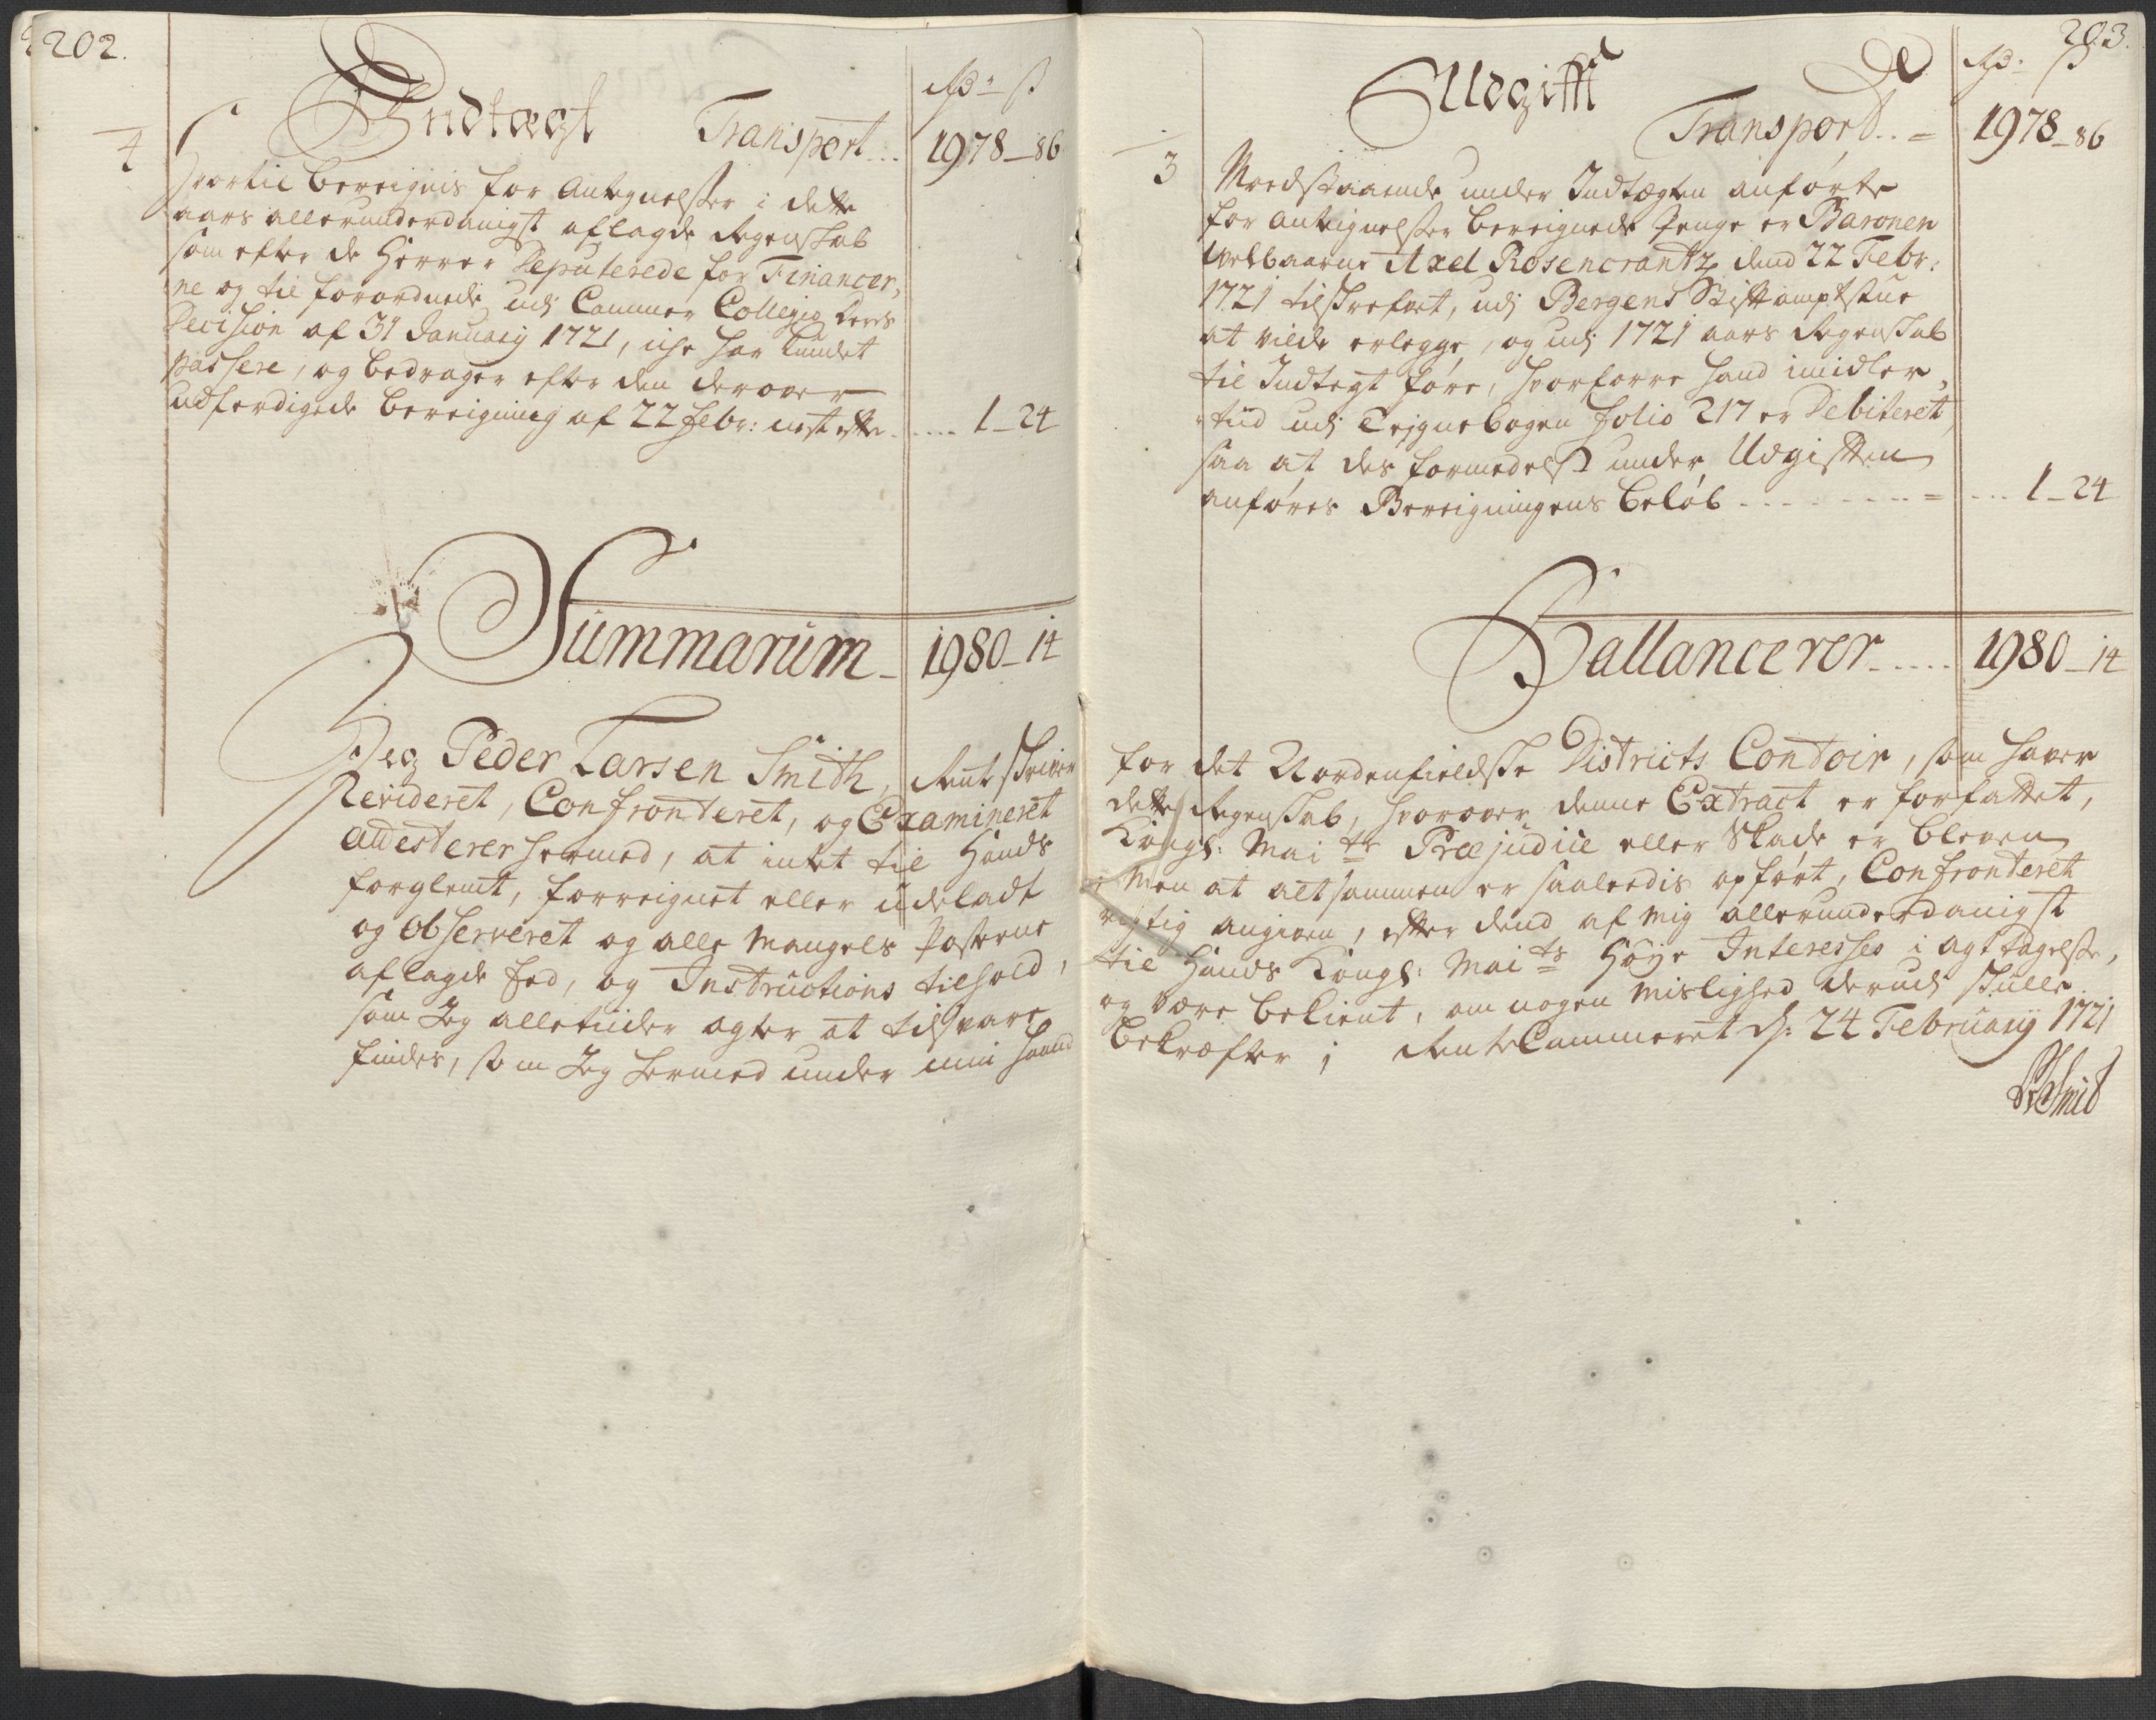 202.
Rdr ß
Indtægt Transport... 1978_86
4
Hvortil bereignis for Antegnelser i dette
aars allerunderdanigst aflagde Regenskab
som efter de Herrer Deputerede for Financer,
ne og til forordnede udj Cammer Collegio deris
Decision af 31 January 1721, iche har kundet
passere, og bedrager efter den derover
udferdigede bereigning af 22 Febr: nest efter ..... 1_24
Summarum_ 1980_14
Jeg Peder Larsen Smith, Rentskriver
Revideret, Confronteret, og Examineret
attesterer hermed, at intet til Hands
forglemt, forreignet eller udeladt
og observeret og alle Mangels Posterne
aflagde Eed, og Instructions tilhold,
som Jeg alletiider agter at tilsvare,
findes, som Jeg hermed under min haand
203.
Rdr ß
Udgifft
Transport.. = 1978_86
3
Modstaaende under Indtægten anførte
for antegnelser bereignede Penge er Baronen
Welbaarne Axel Rosencrantz dend 22 Febr:
1721 tilskrefvet, udj Bergens Stiftamptstue
at vilde erlegge, og udj 1721 aars Regenskab
til Indtegt føre, hvorforre hand imidler,
tiid udj Tejgnebogen folio 217 er Debiteret,
saa at des formedelst under Udgiften
anføres Bereigningens beløb - - - - - - - - = ... 1_24
Ballancerer..... 1980_14
for det Nordenfieldske Districts Contoir, som haver
dette Regenskab, hvorover denne Extract er forfattet,
Kongl: Maits Præjudice eller Skade er bleven
Men at altsammen er saaleedis opført, Confronteret
rigtig angiven, efter dend af mig allerunderdanigst
til Hands Kongl: Maits Høye Interesses i agttagelse,
og være bekient, om nogen mislighed derudj skulle
bekræfter i RenteCammeret d: 24 February 1721
PLSmid